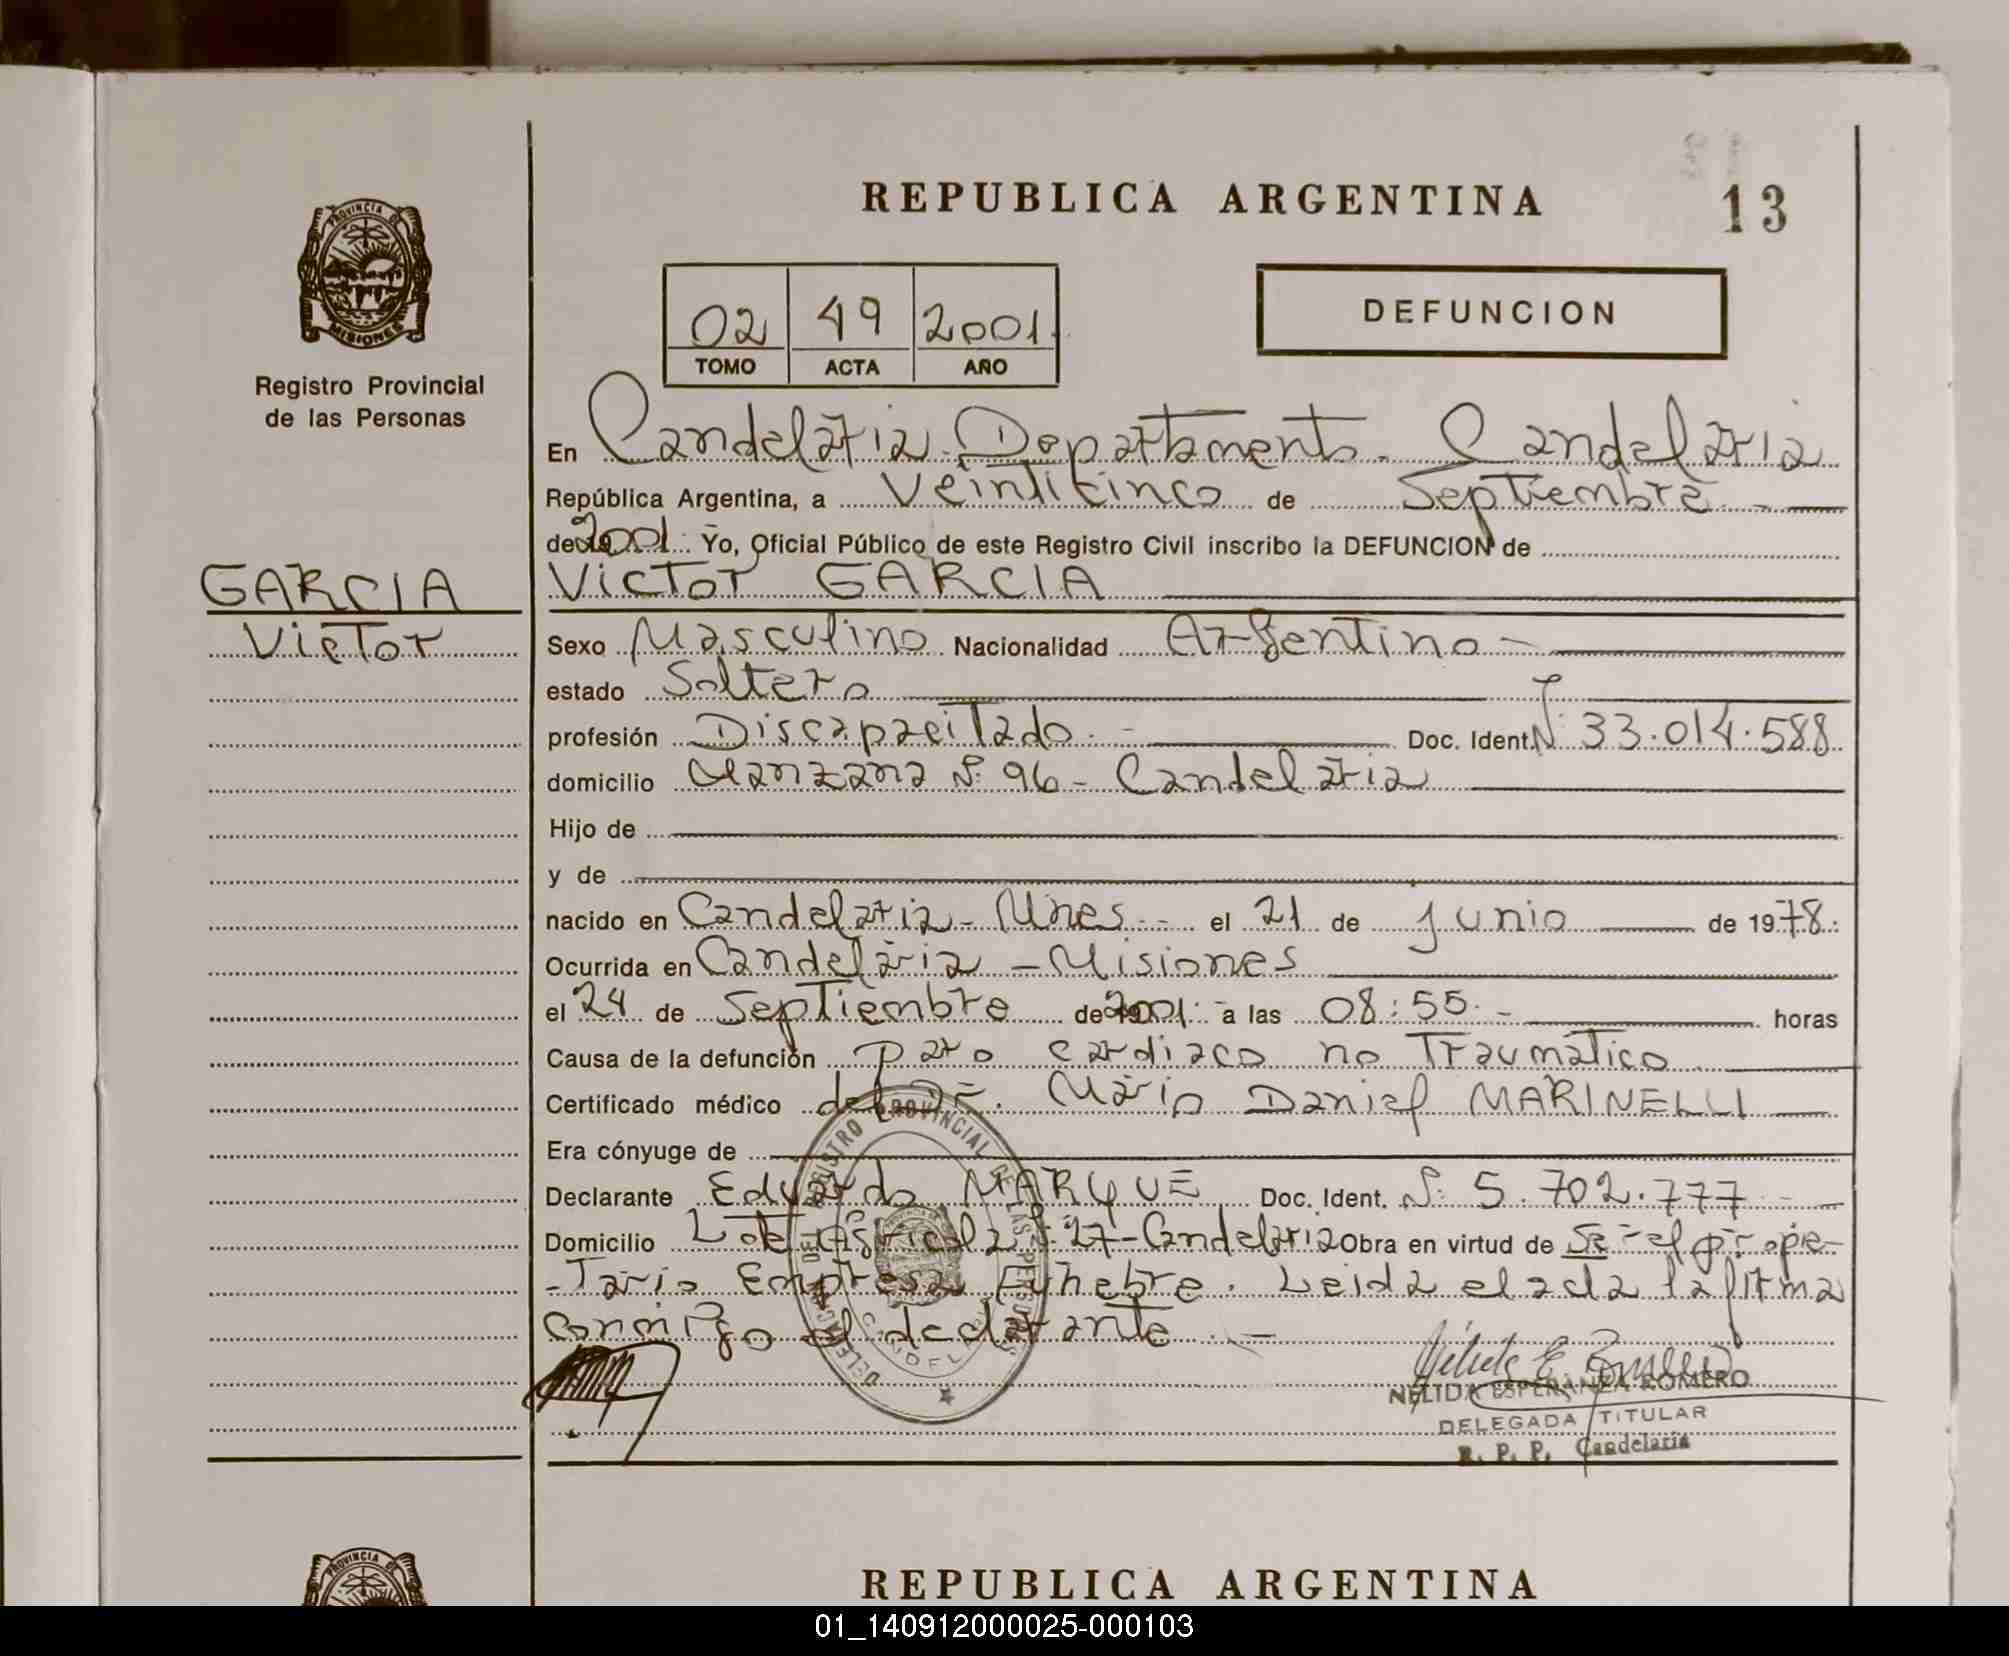 REPUBLICA ARGENTINA
13
PROVINCIA DE
MISIONES
Registro Provincial
de las Personas
02 49 2001
TOMO ACTA AÑO
DEFUNCION
En Candelaria - Departamento - Candelaria
República Argentina, a Veinticinco de Septiembre
de 2001 Yo, Oficial Público de este Registro Civil inscribo la DEFUNCION de
GARCIA
Victor
Victor GARCIA
Sexo Masculino Nacionalidad Argentino -
estado Soltero
profesión Discapacitado. - Doc. Ident. Nº 33.014.588
domicilio Manzana Nº 96 - Candelaria
Hijo de
y de
nacido en Candelaria - Mnes - el 21 de junio de 1978.
Ocurrida en Candelaria - Misiones
el 24 de Septiembre de 2001 a las 08:55. - horas
Causa de la defunción paro cardiaco no Traumático
Certificado médico del Dr. Mario Daniel MARINELLI
Era cónyuge de
Declarante Eduardo MARQUE Doc. Ident. Nº 5.702.777 -
Domicilio Lote Agricola Nº 27 - Candelaria Obra en virtud de Ser el propie-
-Tario Empresa Funebre. Leida el acta la firma
conmigo el declarante. -
DELEGACION DEL REGISTRO PROVINCIAL DE LAS PERSONAS
CANDELARIA
NELIDA ESPERANZA ROMERO
DELEGADA TITULAR
R. P. P. Candelaria
PROVINCIA
REPUBLICA ARGENTINA
01_140912000025-000103